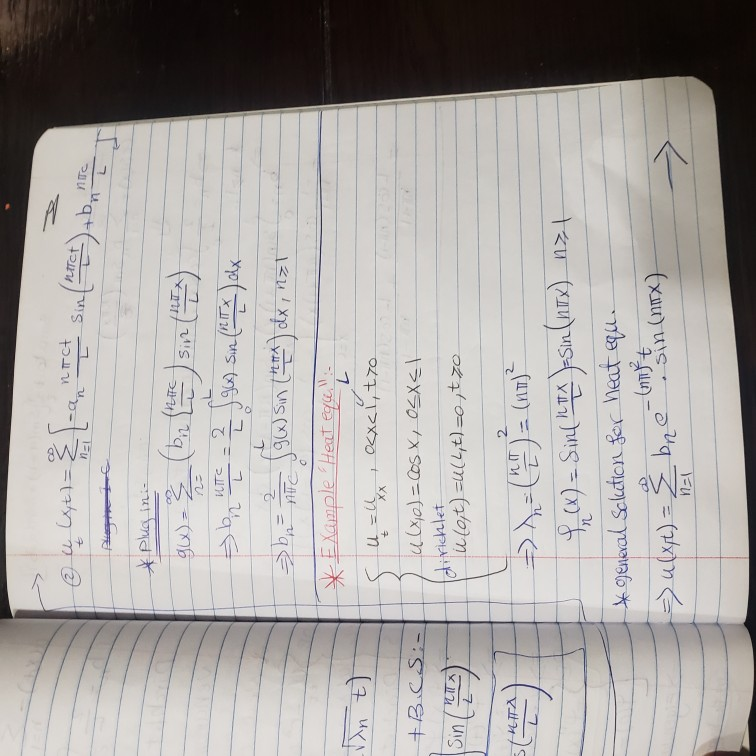 ② u_t(x,t) = Σ_{n=1}^{∞} [-a_n nπc/L sin(nπct/L) + b_n nπc/L
* plug in:-
g(x) = Σ_{n=}^{∞} (b_n nπc/L) sin(nπx/L)
⇒ b_n nπc/L = 2/L ∫_0^L g(x) sin(nπx/L) dx
⇒ b_n = 2/nπc ∫_0^L g(x) sin(nπx/L) dx, n≥1
* Example "Heat equ.":-
L
u_t = u_xx, 0<x<1, t>0
u(x,0) = cos x, 0≤x≤1
dirichlet
u(0,t) = u(1,t) = 0, t≥0
⇒ λ_n = (nπ/L)^2 = (nπ)^2
φ_n(x) = Sin(nπx/L) = Sin(nπx) n≥1
* general Solution for heat equ.
⇒ u(x,t) = Σ_{n=1}^{∞} b_n e^{-(nπ)^2 t} · sin(nπx)
→
√λn t)
+B.C.S:-
sin(nπx/L)
(nπx/L)